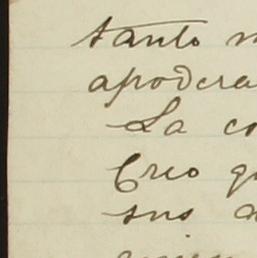 tanto
apodera
La co
Creo q
sus